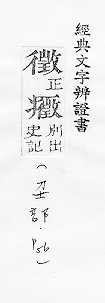 經典文字辨證書
徵正癥別出史記(部.P56)